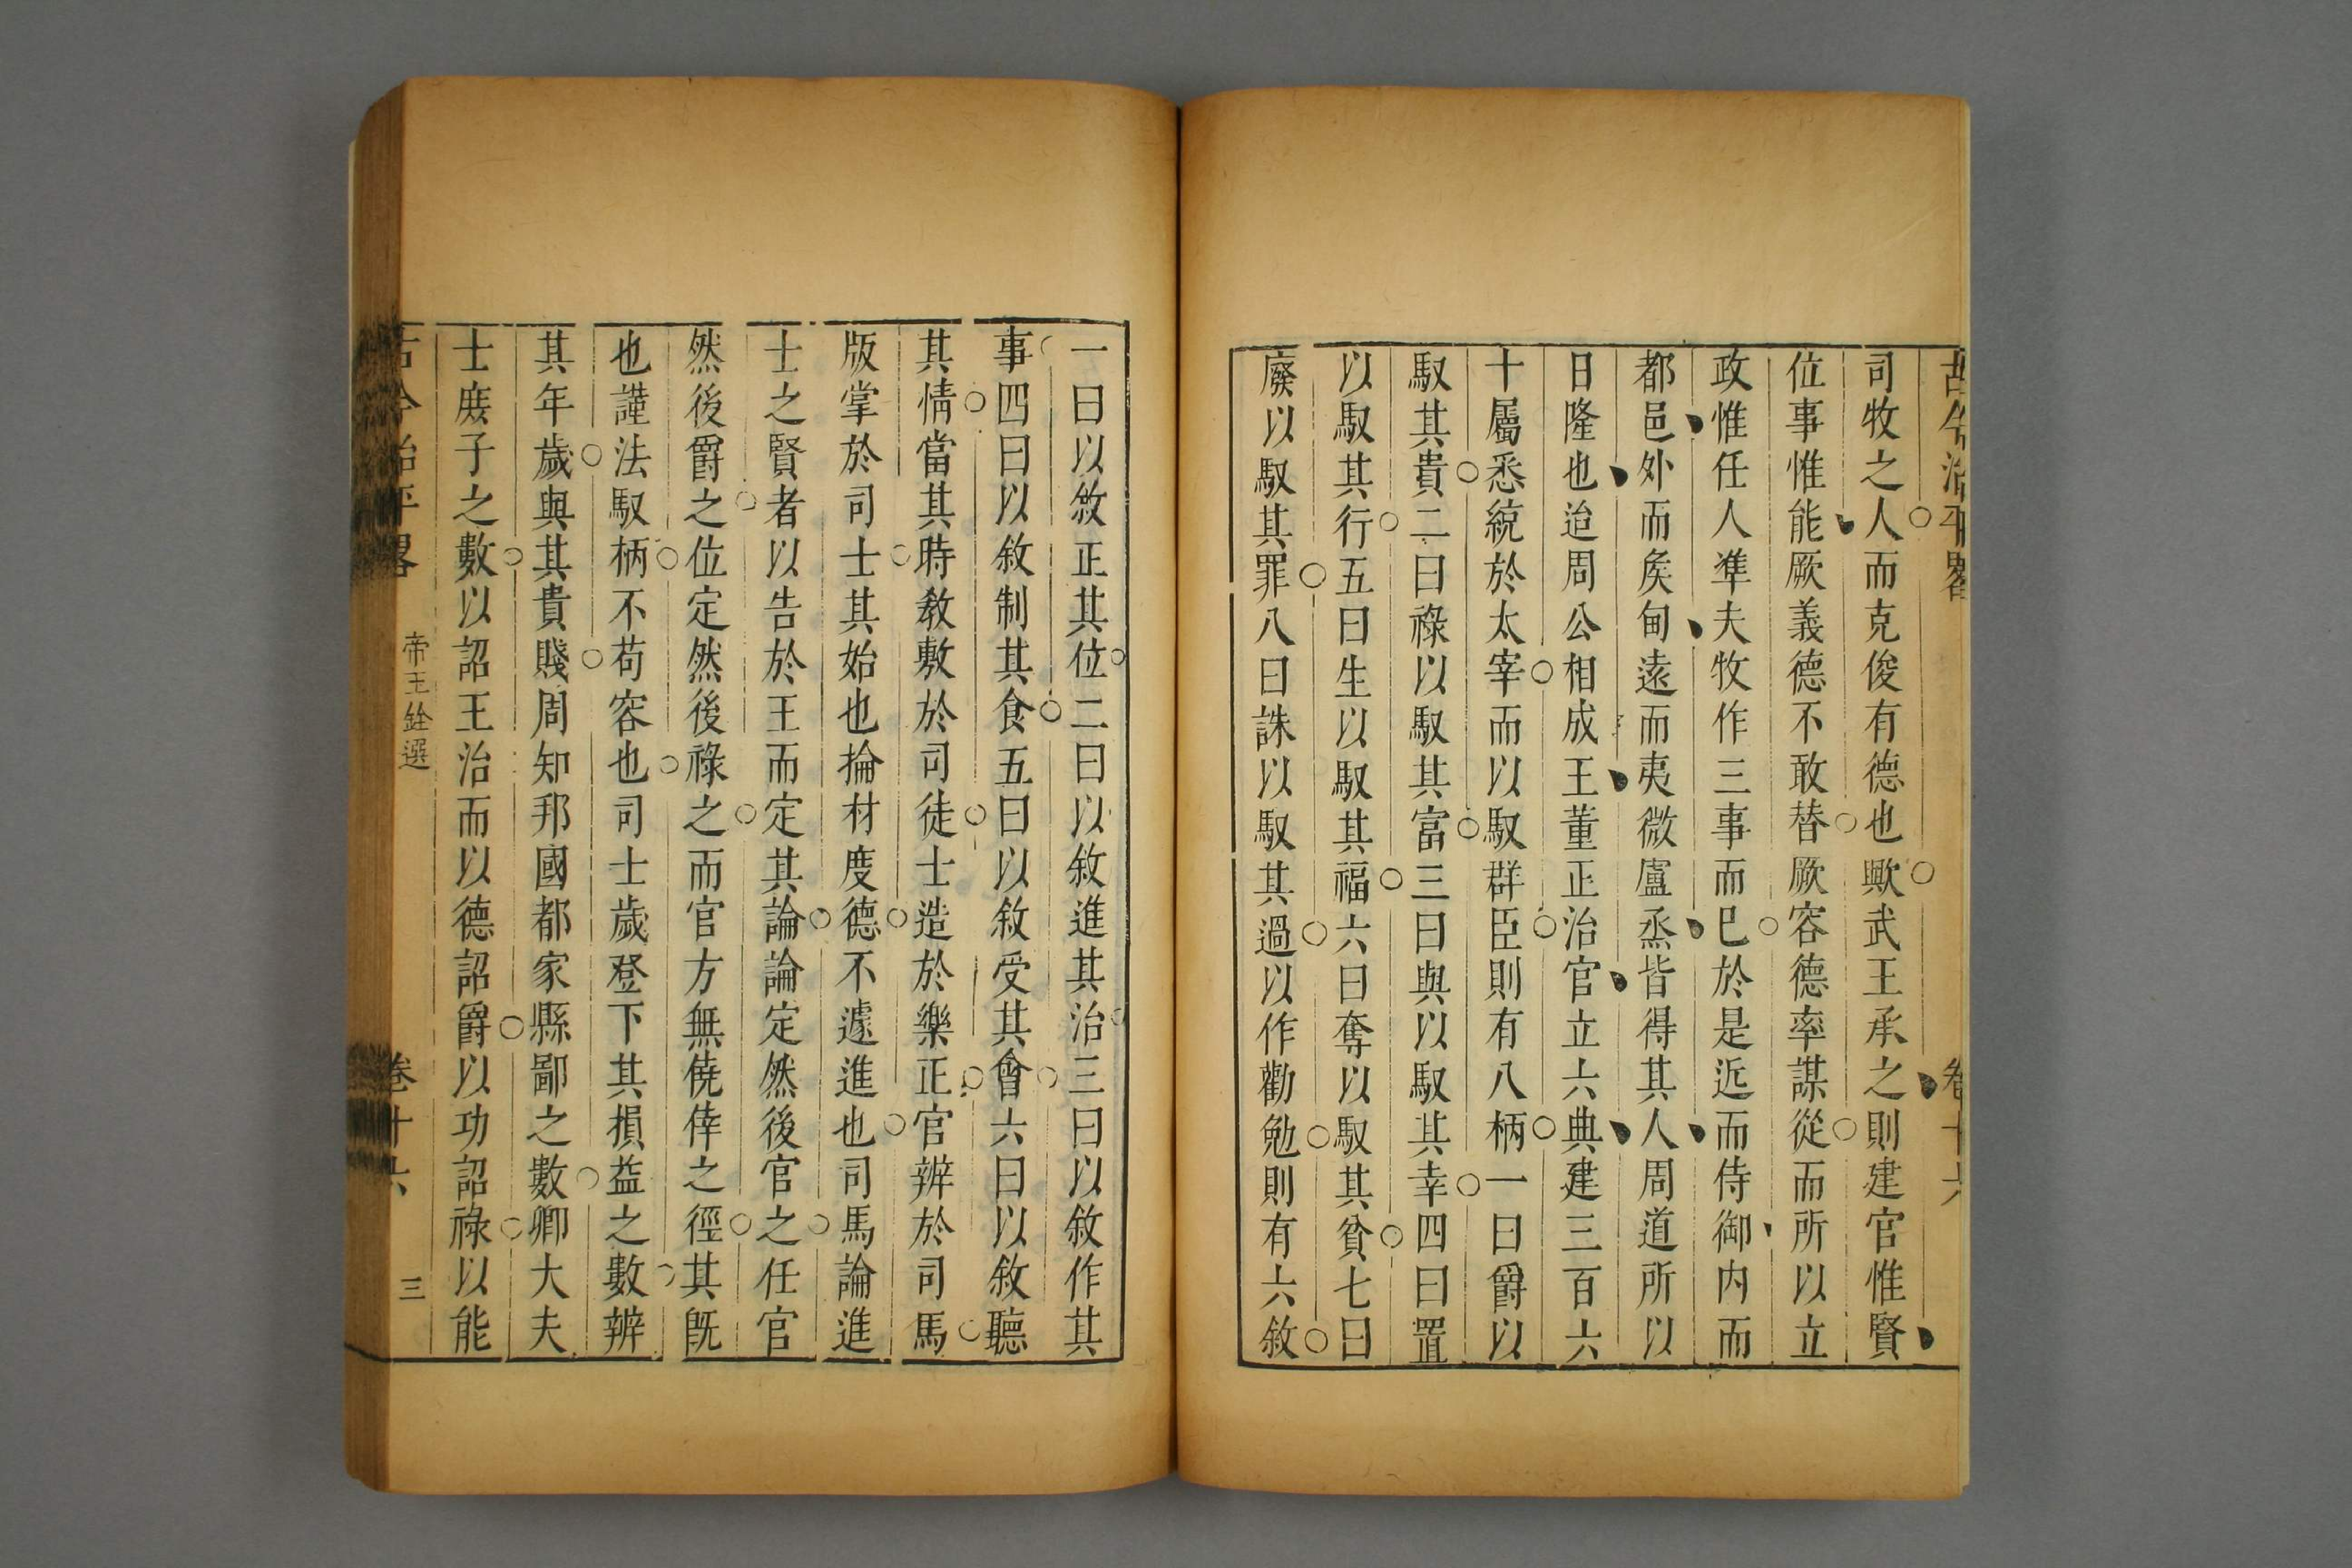 古今治平畧 卷十六
司牧之人而克俊有德也歟武王承之則建官惟賢
位事惟能厥義德不敢替厥容德率謀從而所以立
政惟任人準夫牧作三事而已於是近而侍御内而
都邑外而矦甸遠而夷微盧烝皆得其人周道所以
日隆也迨周公相成王董正治官立六典建三百六
十屬悉統於太宰而以馭群臣則有八柄一曰爵以
馭其貴二曰祿以馭其富三曰與以馭其幸四曰置
以馭其行五曰生以馭其福六曰奪以馭其貧七曰
廢以馭其罪八曰誅以馭其過以作勸勉則有六敘
一曰以敘正其位二曰以敘進其治三曰以敘作其
事四曰以敘制其食五曰以敘受其會六曰以敘聽
其情當其時教敷於司徒士造於樂正官辨於司馬
版掌於司士其始也掄材度德不遽進也司馬論進
士之賢者以告於王而定其論論定然後官之任官
然後爵之位定然後祿之而官方無僥倖之徑其既
也謹法馭柄不苟容也司士歲登下其損益之數辨
其年歲與其貴賤周知邦國都家縣鄙之數卿大夫
士庶子之數以詔王治而以德詔爵以功詔祿以能
古今治平畧 帝王銓選 卷十六 三